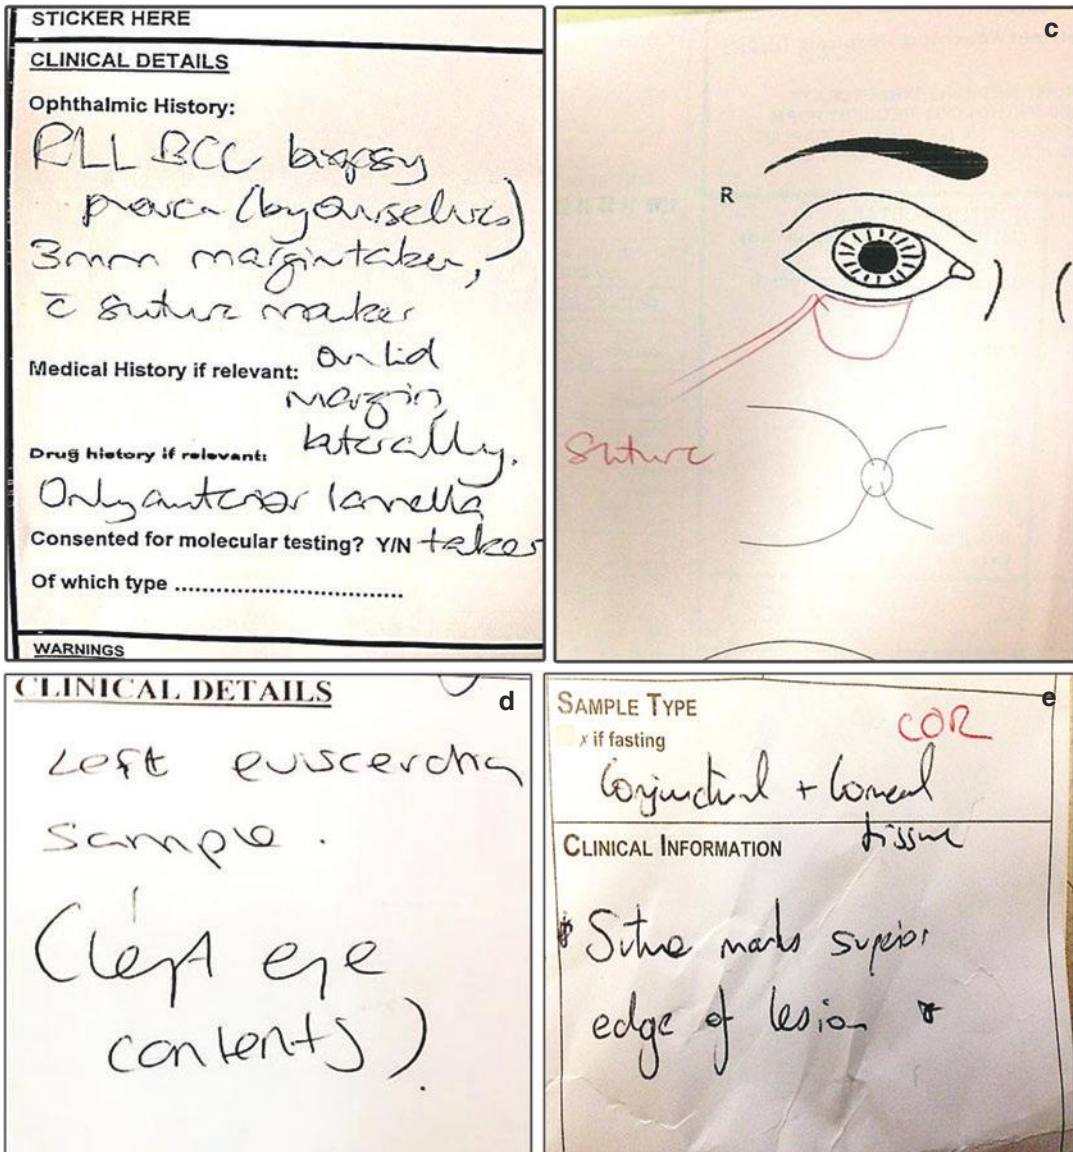 STICKER HERE
CLINICAL DETAILS
Ophthalmic History:
RLL BCC biopsy
proven (by ourselves)
3mm margin taken,
c̄ suture marker
Medical History if relevant: on lid
margin
laterally.
Drug history if relevant:
Only anterior lamella
Consented for molecular testing? Y/N taken
Of which type ................................
WARNINGS
c
R
Suture
CLINICAL DETAILS
d
Left evisceration
sample.
(left eye
contents).
SAMPLE TYPE
e
x if fasting
COR
Conjunctival + Corneal
tissue
CLINICAL INFORMATION
* Suture marks superior
edge of lesion *